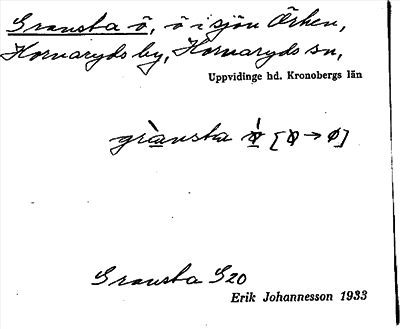 Gransta ö, ö i sjön Örken,
Hornaryds by, Hornaryds sn,
Uppvidinge hd. Kronobergs län
grànsta ø̀ [ø → ø]
Gransta G20
Erik Johannesson 1933